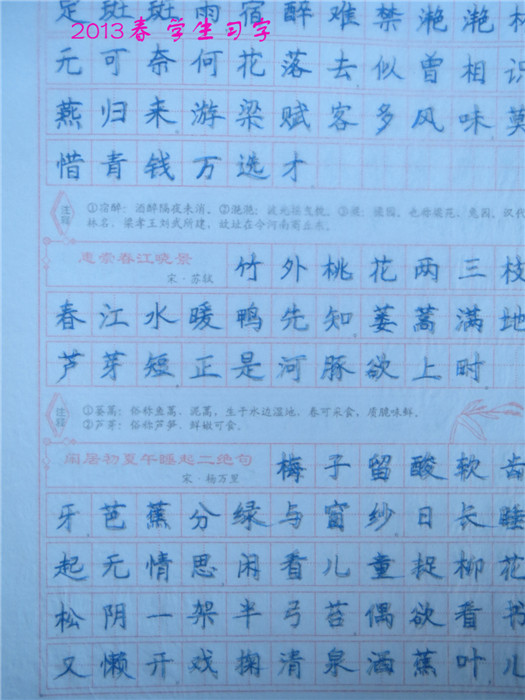 定斑斑雨宿醉难禁滟滟
2013春 学生习字
无可奈何花落去似曾相识
燕归来游梁赋客多风味莫
惜青钱万选才
注释
①宿醉：酒醉隔夜未消。②滟滟：波光摇曳貌。③梁：梁园，也称菟苑、兔园，汉代
林名，梁孝王刘武所建，故址在今河南商丘东。
惠崇春江晓景
宋·苏轼
竹外桃花两三枝
春江水暖鸭先知蒌蒿满地
芦芽短正是河豚欲上时
注释
①蒌蒿：俗称鱼蒿、泥蒿，生于水边湿地，春可采食，质脆味鲜。
②芦芽：俗称芦笋，鲜嫩可食。
闲居初夏午睡起二绝句
宋·杨万里
梅子留酸软齿
牙芭蕉分绿与窗纱日长睡
起无情思闲看儿童捉柳花
松阴一架半弓苔偶欲看书
又懒开戏掬清泉洒蕉叶儿